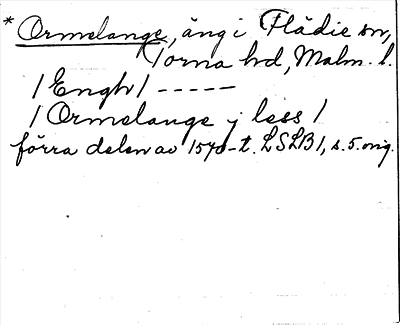 * Ormelange, äng i Flädie sn,
Torna hd, Malm. l.
/Engh/ -----
/Ormelange j less/
förra delen av 1570-t. LSLB1, s. 5. orig.